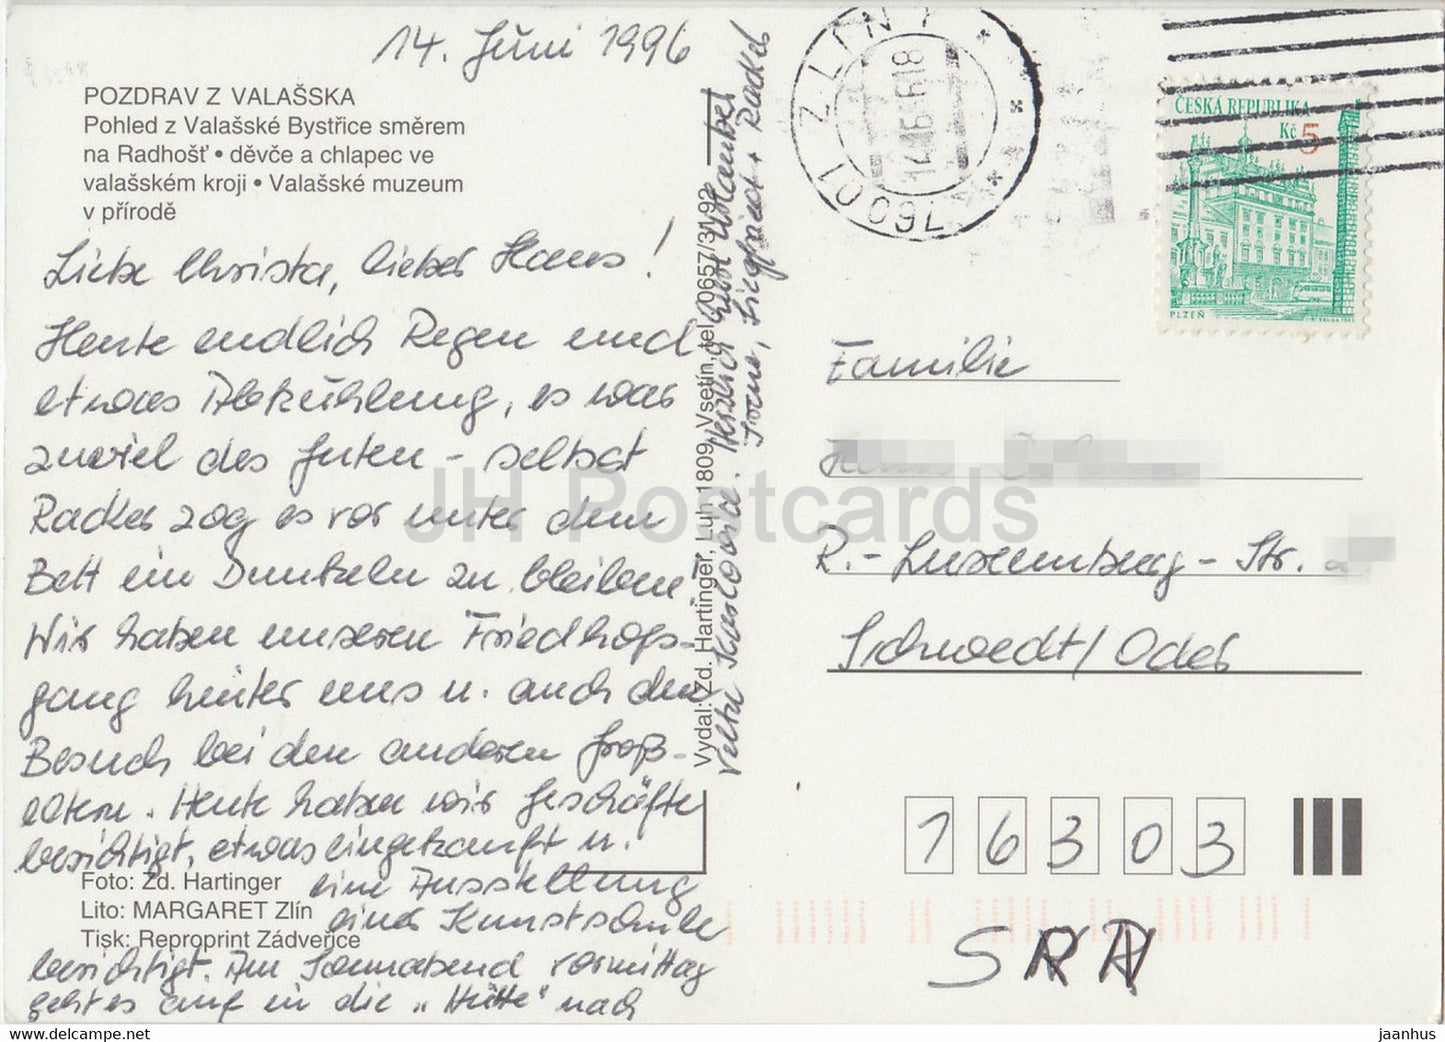 14. Juni 1996
POZDRAV Z VALAŠSKA
Pohled z Valašské Bystřice směrem
na Radhošť • děvče a chlapec ve
valašském kroji • Valašské muzeum
v přírodě
Liebe Christa, lieber Hans!
Heute endlich Regen und
etwas Abkühlung, es war
zuviel des Guten - selbst
Racker zog es vor unter dem
Bett im Dunkeln zu bleiben.
Wir haben unseren Friedhofs-
gang hinter uns u. auch den
Besuch bei den anderen Groß-
eltern. Heute haben wir Geschäfte
besichtigt, etwas eingekauft u.
eine Ausstellung
einer Kunstschule
besichtigt. Am Sonnabend vormittag
geht es auf in die "Hütte" nach
Velke Karlovice. Herzlich
Irena, Siegfried + Racker
Foto: Zd. Hartinger
Lito: MARGARET Zlín
Tisk: Reproprint Zádveřice
Vydal: Zd. Hartinger, Luh 1809, Vsetín, tel. 0657/3
760 01 ZLÍN 1
14.-6.96 18
ČESKÁ REPUBLIKA
Kč 5
PLZEŇ
Familie
R.-Luxemburg-Str.
Schwedt/Oder
16303
SRN
JH Postcards
www.delcampe.net
jaanhus